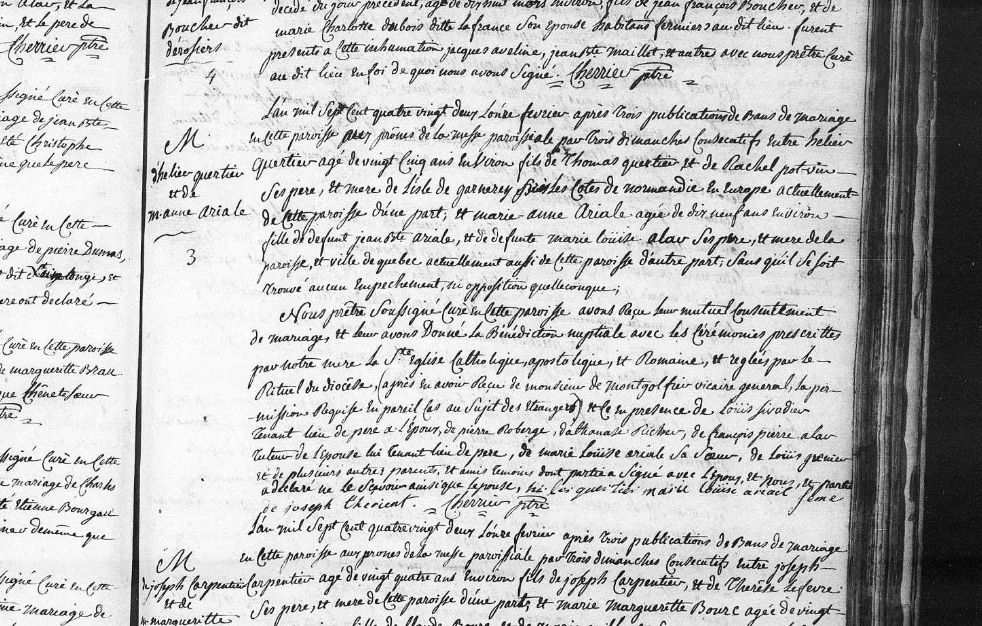 n alav, et La
n, et Le pere de
Cherrier ptre
ssigné Curé en Cette
iage de jean Bte
Christophe
ine que Le pere
é Curé en Cette
age de pierre Dumas,
et dit et
ere ont declaré
Curé en Cette paroisse
de margueritte Brau
que Chênet Soeur
ptre
ssigné Curé en Cette
de mariage de Charles
te Etienne Bourgau
demême que
ssigné Curé en Cette
me mariage de
Boucher dit
dérosiers
4
M
d'helier quertier
et de
m. anne Ariale
3
M
de joseph Carpentier
et de
m. margueritte
decedé du jour precedent, agé de dixhuit mois Environ, fils de jean françois Boucher, et de
marie Charlotte dubois ditte La france Son Epouse habitans fermiers au dit Lieu. furent
presents a Cette inhumation jacques aveline, jean Bte maillot, et autre avec nous prêtre Curé
au dit Lieu en foi de quoi nous avons Signé. Cherrier ptre
L'an mil Sept Cent quatre vingt deux L'onze fevrier après Trois publications de Bans de mariage
en Cette paroisse prônes de la messe paroissiale par Trois dimanches Consecutifs entre helier
quertier agé de vingt Cinq ans Environ fils de Thomas quertier et de Rachel potvin
Ses pere, et mere de L'isle de garnesey Les Cotes de normandie En Europe actuellement
de Cette paroisse d'une part, et marie anne Ariale agée de dix neuf ans Environ
fille de defunt jean Bte ariale, et de defunte marie Loüise alav Ses pere, et mere de la
paroisse, et ville de quebec actuellement aussi de Cette paroisse d'autre part, Sans qu'il Se Soit
Trouvé aucun Empechement, ni opposition quelleconque;
Nous prêtre Soussigné Curé en Cette paroisse avons Reçu Leur mutuel Consentement
de mariage, et Leur avons Donné La Bénédiction nuptiale avec Les Cérémonies prescrittes
par notre mere La Ste Eglise Catholique, apostolique, et Romaine, et reglées par Le
Rituel du diocèse, (après en avoir Reçu de monsieur de montgolfier vicaire general, La per-
mission Requise En pareil Cas au Sujet des Etrangers) et Ce en presence de Loüis Sivadier
Tenant Lieu de pere a L'Epoux, de pierre Roberge, d'athanase Richer, de françois pierre alav
Tuteur de L'epouse Lui Tenant Lieu de pere, de marie Loüise ariale Sa Soeur, de Loüis grenier
et de plusieurs autres parents, et amis temoins dont partie a Signé avec L'epoux, et nous, et partie
a declaré ne Le Sçavoir ainsi que L'epouse, marie Loüise ariail feme
de joseph Cherrier ptre
L'an mil Sept Cent quatre vingt deux L'onze fevrier après Trois publications de Bans de mariage
en Cette paroisse aux prones de la messe paroissiale par Trois dimanches Consecutifs Entre joseph
Carpentier agé de vingt quatre ans Environ fils de joseph Carpentier, et de Therèse Lefevre
Ses pere, et mere de Cette paroisse d'une part, et marie Margueritte Bourc agée de vingt